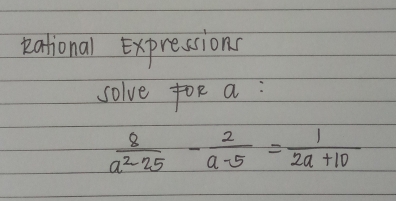 Rational Expressions
solve FOR a :
8/(a²-25) - 2/(a-5) = 1/(2a+10)